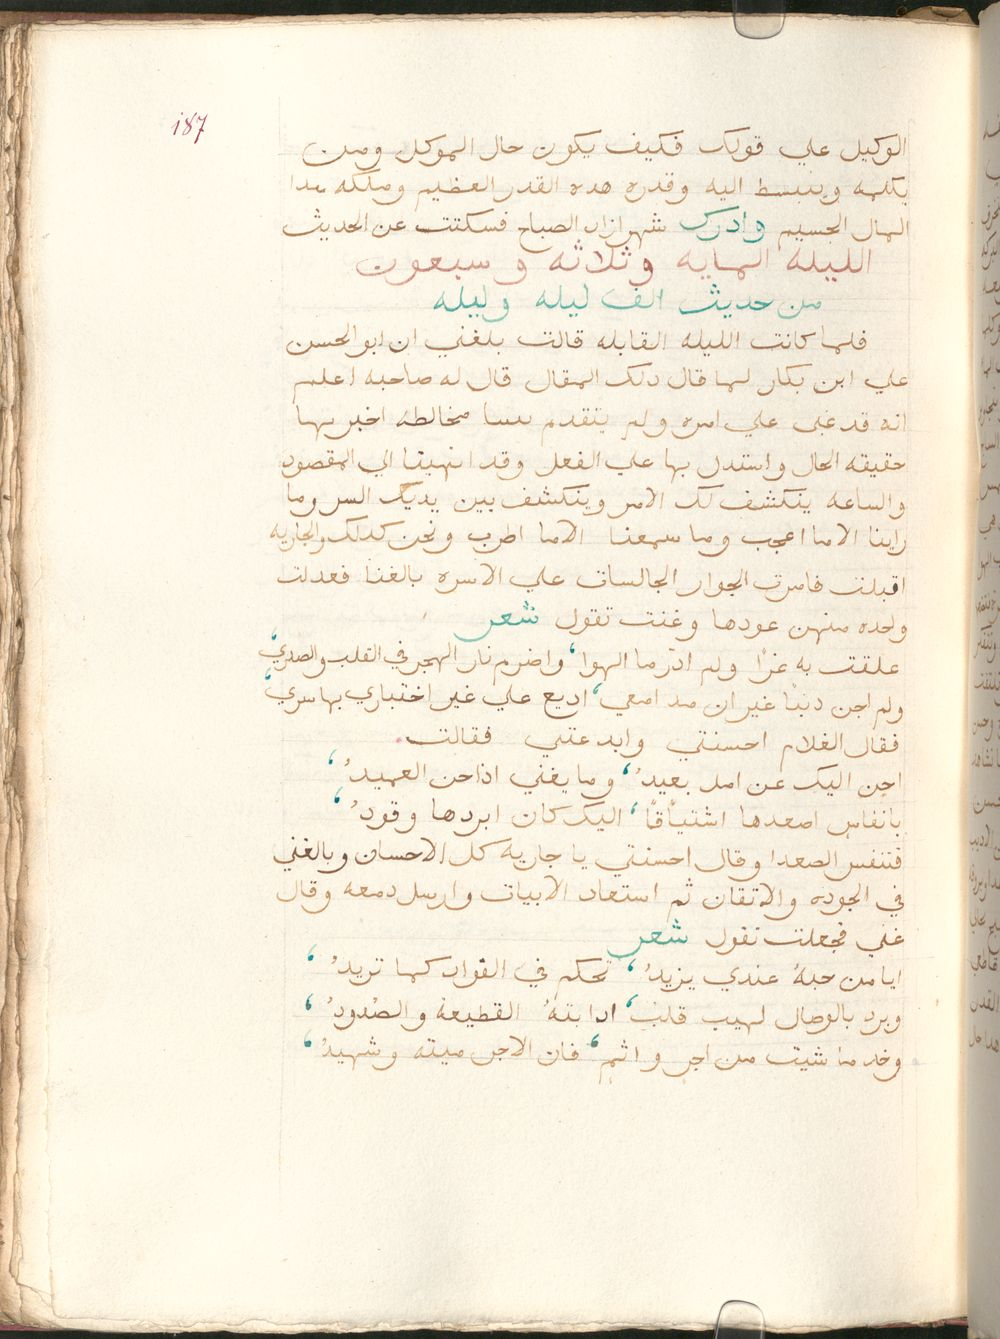 187
الوكيل علي قولك فكيف يكون حال الموكل ومن
يكلمه وينبسط اليه وقدره هده القدر العظيم وملكه هدا
المال الجسيم وادرك شهرازاد الصباح فسكتت عن الحديث
الليله المايه وثلاثه وسبعون
من حديث الف ليله وليله
فلما كانت الليله القابله قالت بلغني ان ابو الحسن
علي ابن بكار لما قال دلك المقال قال له صاحبه اعلم
انه قد غبي علي امره ولم يتقدم بيننا مخالطه اخبر بها
حقيقه الحال واستدل بها علي الفعل وقد انتهينا الي المقصود
والساعه ينكشف لك الامر وينكشف بين يديك السر وما
راينا الا ما اعجب وما سمعنا الا ما اطرب ونحن كدلك والجاريه
اقبلت فامرت الجوار الجالسات علي الاسره بالغنا فعدلت
واحده منهن عودها وغنت تقول شعر
علقت به غرًا ولم ادر ما الهوا، واضرم نار الهجر في القلب والصدري،
ولم اجن دنبًا غير ان مدامعي، اديع علي غير اختياري بها سري،
فقال الغلام احسنتي وابدعتي فقالت
احن اليك عن امل بعيدُ، وما يغني اذا حن العميدُ،
بانفاس اصعدها اشتياقًا، اليك كان ابردها وقودُ،
فتنفس الصعدا وقال احسنتي يا جاريه كل الاحسان وبالغتي
في الجوده والاتقان ثم استعاد الابيات وارسل دمعه وقال
غني فجعلت تقول شعر
ايا من حبهُ عندي يزيدُ، تحكم في الفواد كما تريدُ،
وبرد بالوصال لهيب قلب، ادابتهُ القطيعه والصدودُ،
وخد ما شيت من اجر واثم، فان الاجر ميته وشهيدُ،